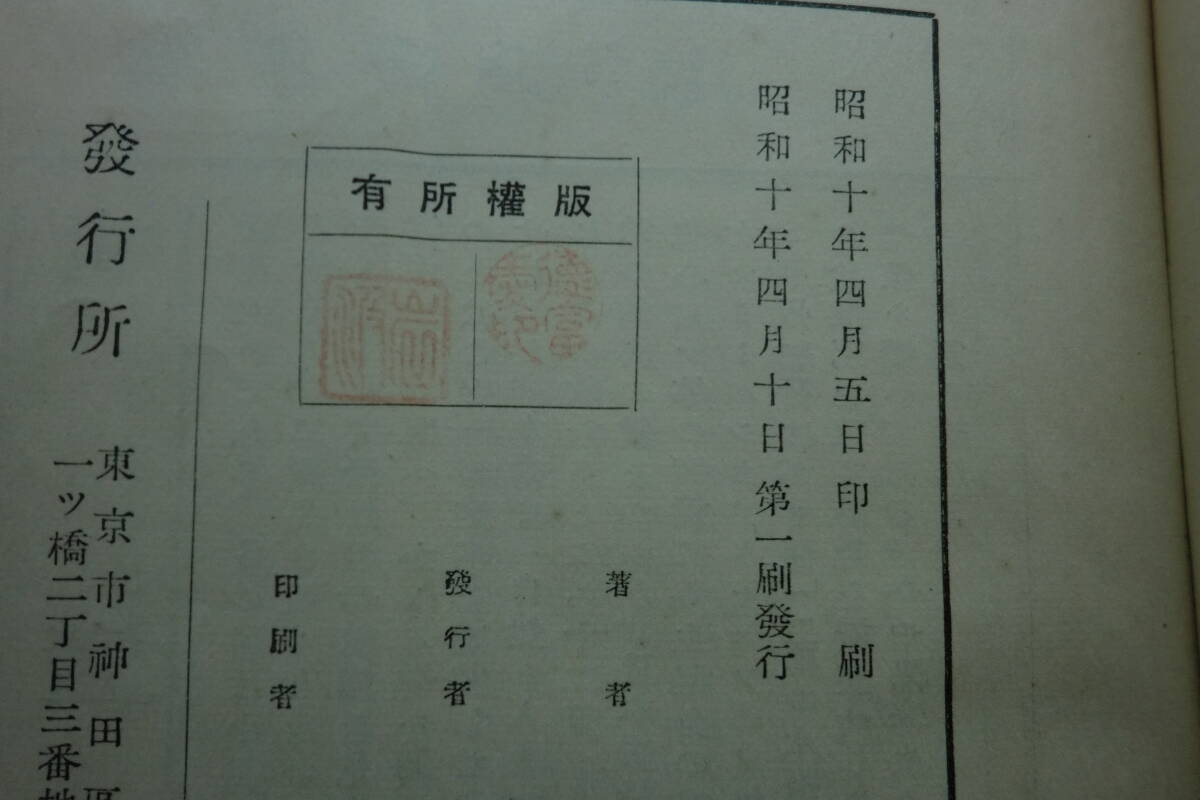 昭和十年四月五日印刷
昭和十年四月十日第一刷發行
版權所有
德富
岩波
著者
發行者
印刷者
發行所
東京市神田區
一ツ橋二丁目三番地